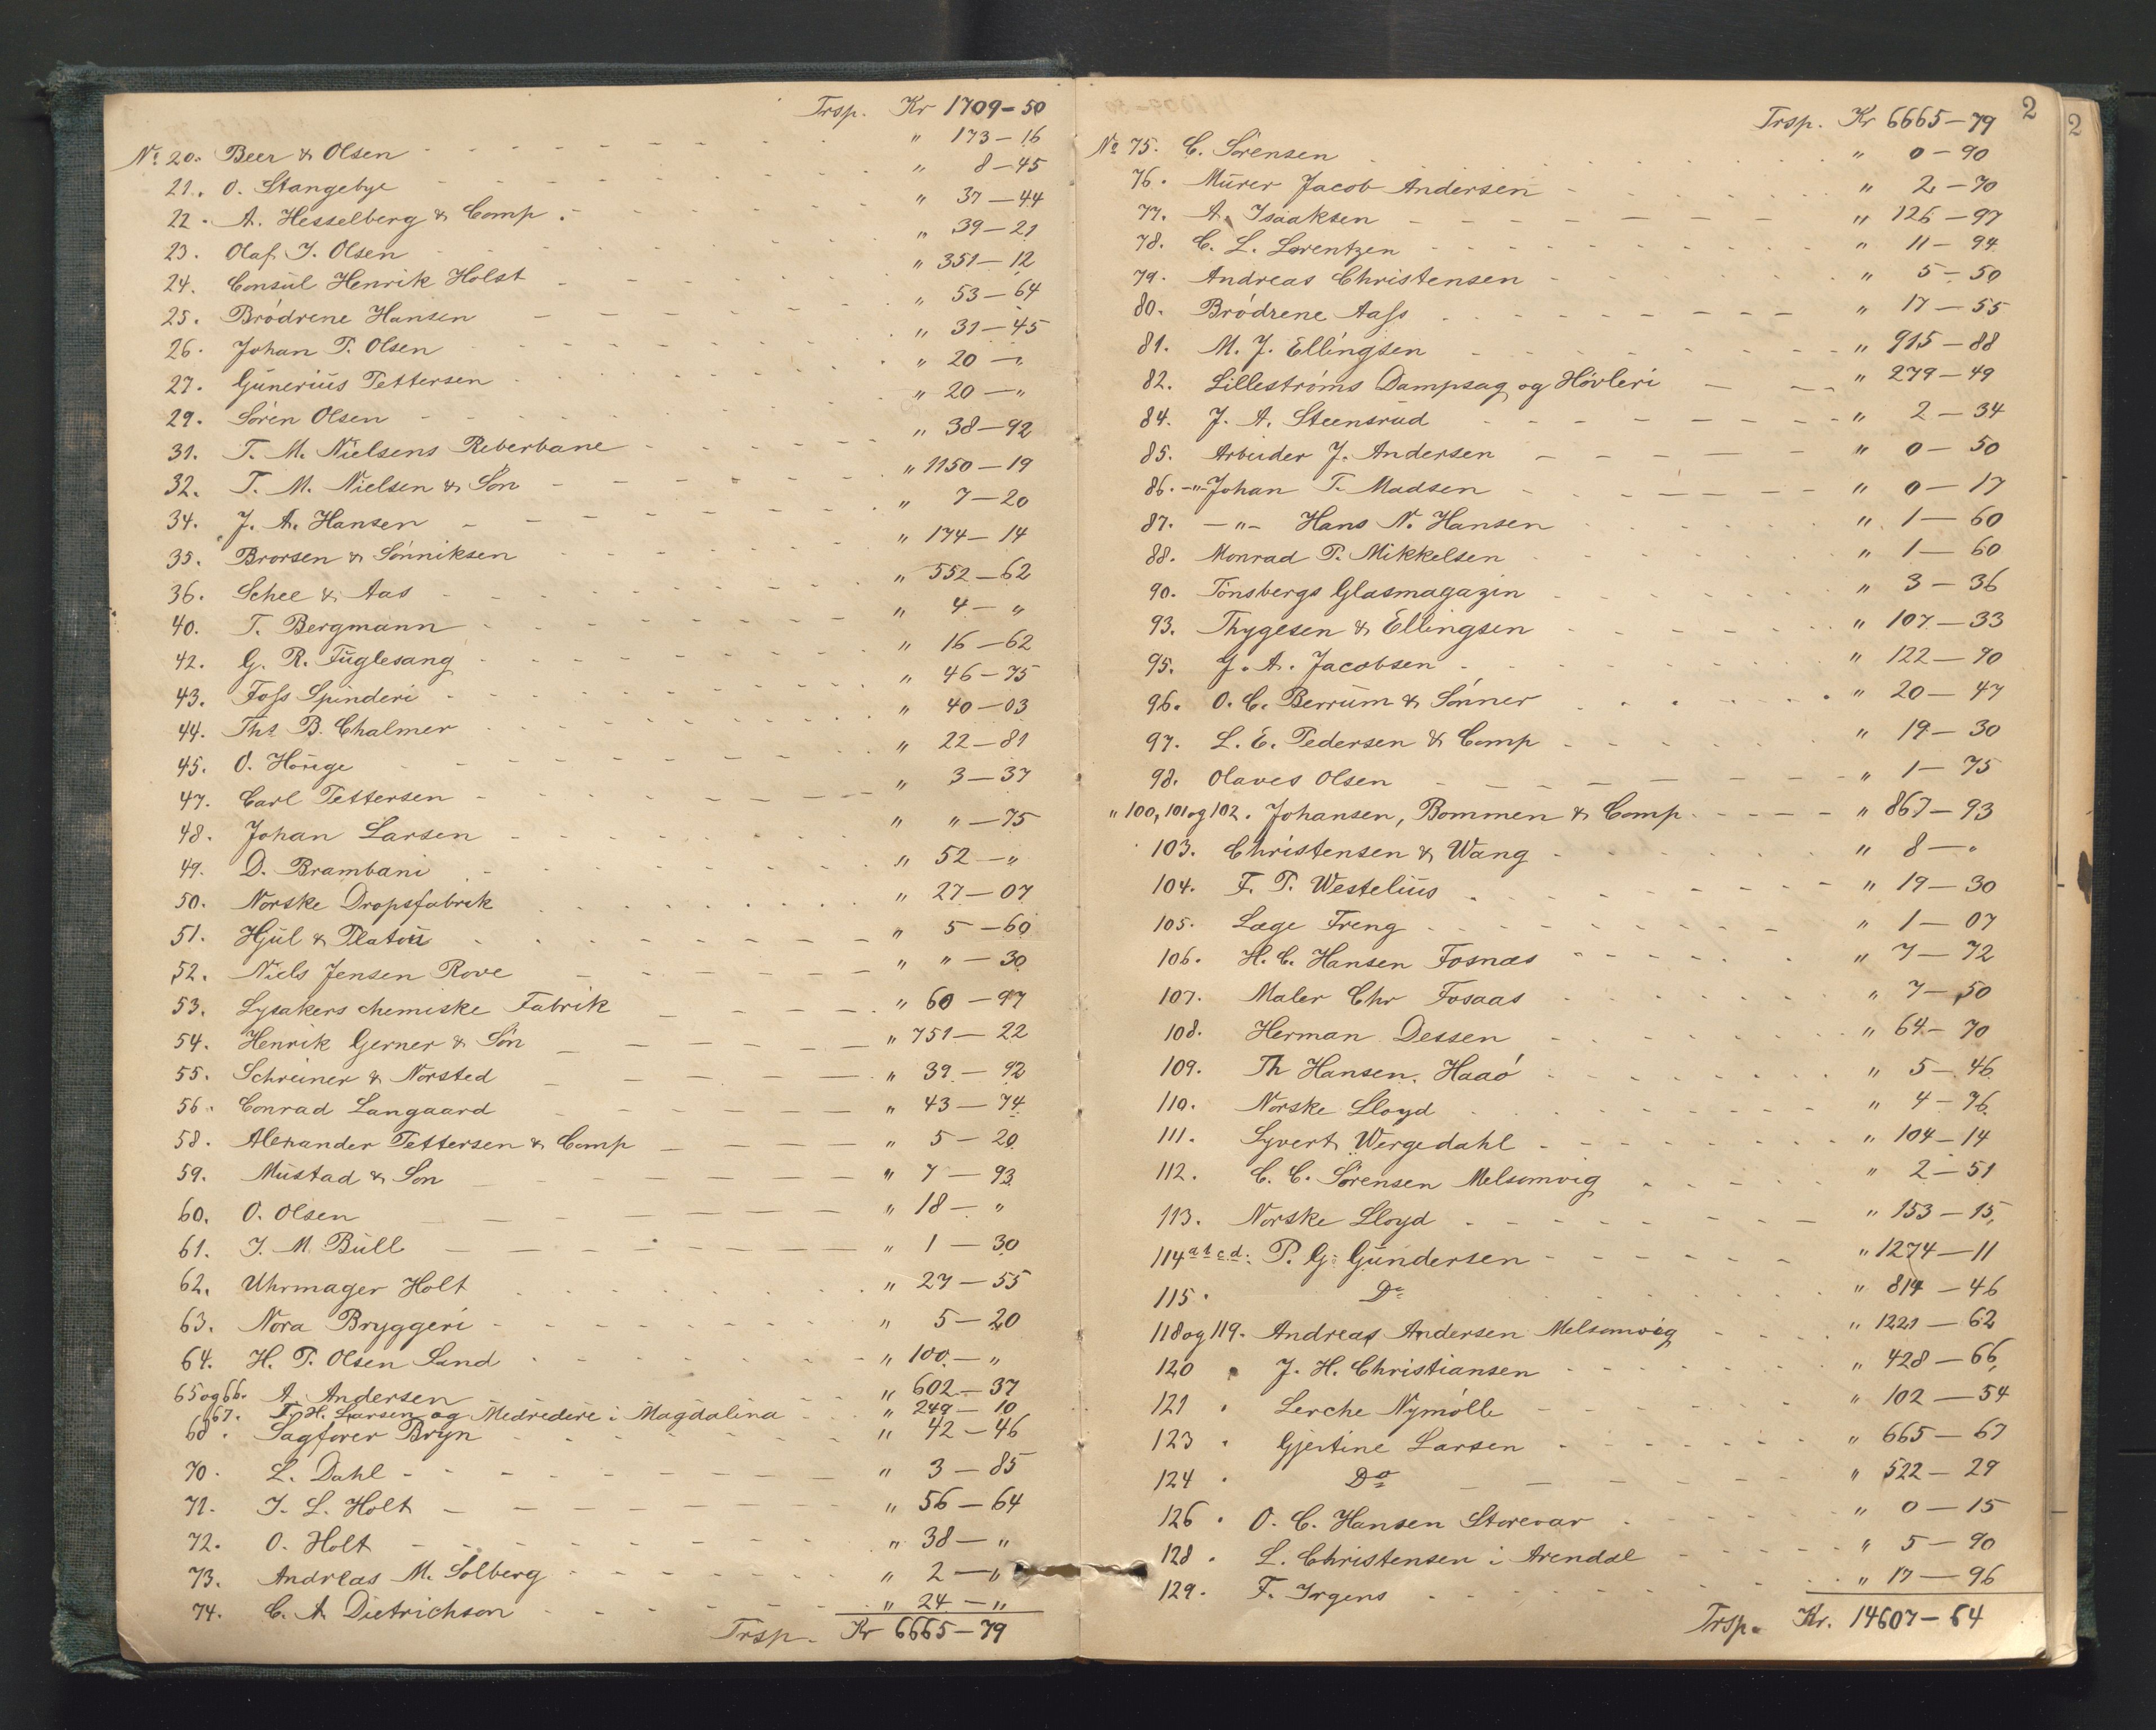 Trsp. Kr 1709-50
No 20. Beer & Olsen " 173-16
21. O. Stangebye " 8-45
22. A. Hesselberg & Comp. " 37-44
23. Olaf J. Olsen " 39-21
24. Consul Henrik Holst " 351-12
25. Brödrene Hansen " 53-64
26. Johan P. Olsen " 31-45
27. Gunerius Pettersen " 20-"
29. Sören Olsen " 20-"
31. T. M. Nielsens Reberbane " 38-92
32. T. M. Nielsen & Sön " 1150-19
34. J. A. Hansen " 7-20
35. Brorsen & Sönniksen " 174-14
36. Schee & Aas " 552-62
40. T. Bergmann " 4-"
42. G. R. Fuglesang " 16-62
43. Foss Spinderi " 46-75
44. Ths B. Chalmer " 40-03
45. O. Hörge " 22-81
47. Carl Pettersen " 3-37
48. Johan Larsen " "-75
49. D. Brambani " 52-"
50. Norske Dropsfabrik " 27-07
51. Hjul & Platou " 5-60
52. Niels Jensen Rove " "-30
53. Lysakers chemiske Fabrik " 60-97
54. Henrik Gerner & Sön " 751-22
55. Schreiner & Norsted " 39-92
56. Conrad Langaard " 43-74
58. Alexander Pettersen & Comp " 5-20
59. Mustad & Son " 7-93
60. O. Olsen " 18-"
61. J. M. Bull " 1-30
62. Uhrmager Holt " 27-55
63. Nora Bryggeri " 5-20
64. H. P. Olsen Sand " 100-"
65og66. A. Andersen " 602-37
67. T. H. Larsen og Medredere i Magdalina " 249-10
68. Sagförer Bryn " 42-46
70. L. Dahl " 3-85
71. J. L. Holt " 56-64
72. O. Holt " 38-"
73. Andreas M. Solberg " 2-"
74. C. A. Dietrichson " 24-"
Trsp. Kr 6665-79
2
2
Trsp. Kr 6665-79
No 75. C. Sörensen " 0-90
76. Murer Jacob Andersen " 2-70
77. A. Isaaksen " 126-97
78. C. L. Lorentzen " 11-94
79. Andreas Christensen " 5-50
80. Brödrene Aass " 17-55
81. M. J. Ellingsen " 915-88
82. Lilleströms Dampsag og Hövleri " 279-49
84. J. A. Steensrud " 2-34
85. Arbeider J. Andersen " 0-50
86. -"- Johan T. Madsen " 0-17
87. -"- Hans N. Hansen " 1-60
88. Monrad P. Mikkelsen " 1-60
90. Tönsbergs Glasmagazin " 3-36
93. Thygesen & Ellingsen " 107-33
95. J. A. Jacobsen " 122-90
96. O. C. Berrum & Sönner " 20-47
97. L. E. Pedersen & Comp " 19-30
98. Olaves Olsen " 1-75
" 100, 101og102. Johansen, Bommen & Comp " 867-93
103. Christensen & Wang " 8-"
104. F. P. Westelius " 19-30
105. Læge Freng " 1-07
106. H. C. Hansen Fosnæs " 7-72
107. Maler Chr Fosaas " 7-50
108. Herman Dessen " 64-70
109. Th Hansen, Haaö " 5-46
110. Norske Lloyd " 4-76
111. Syvert Wergedahl " 104-14
112. C. C. Sörensen Melsomvig " 2-51
113. Norske Lloyd " 153-15
114 a b c d. P. G. Gundersen " 1274-11
115. Do " 814-46
118og119. Andreas Andersen Melsomvig " 1221-62
120. J. H. Christiansen " 428-66
121. Lerche Nymölle " 102-54
123. Gjertine Larsen " 665-67
124. Do " 522-29
126. O. C. Hansen Storevar " 0-15
128. L. Christensen i Arendal " 5-90
129. F. Irgens " 17-96
Trsp. Kr. 14607-64